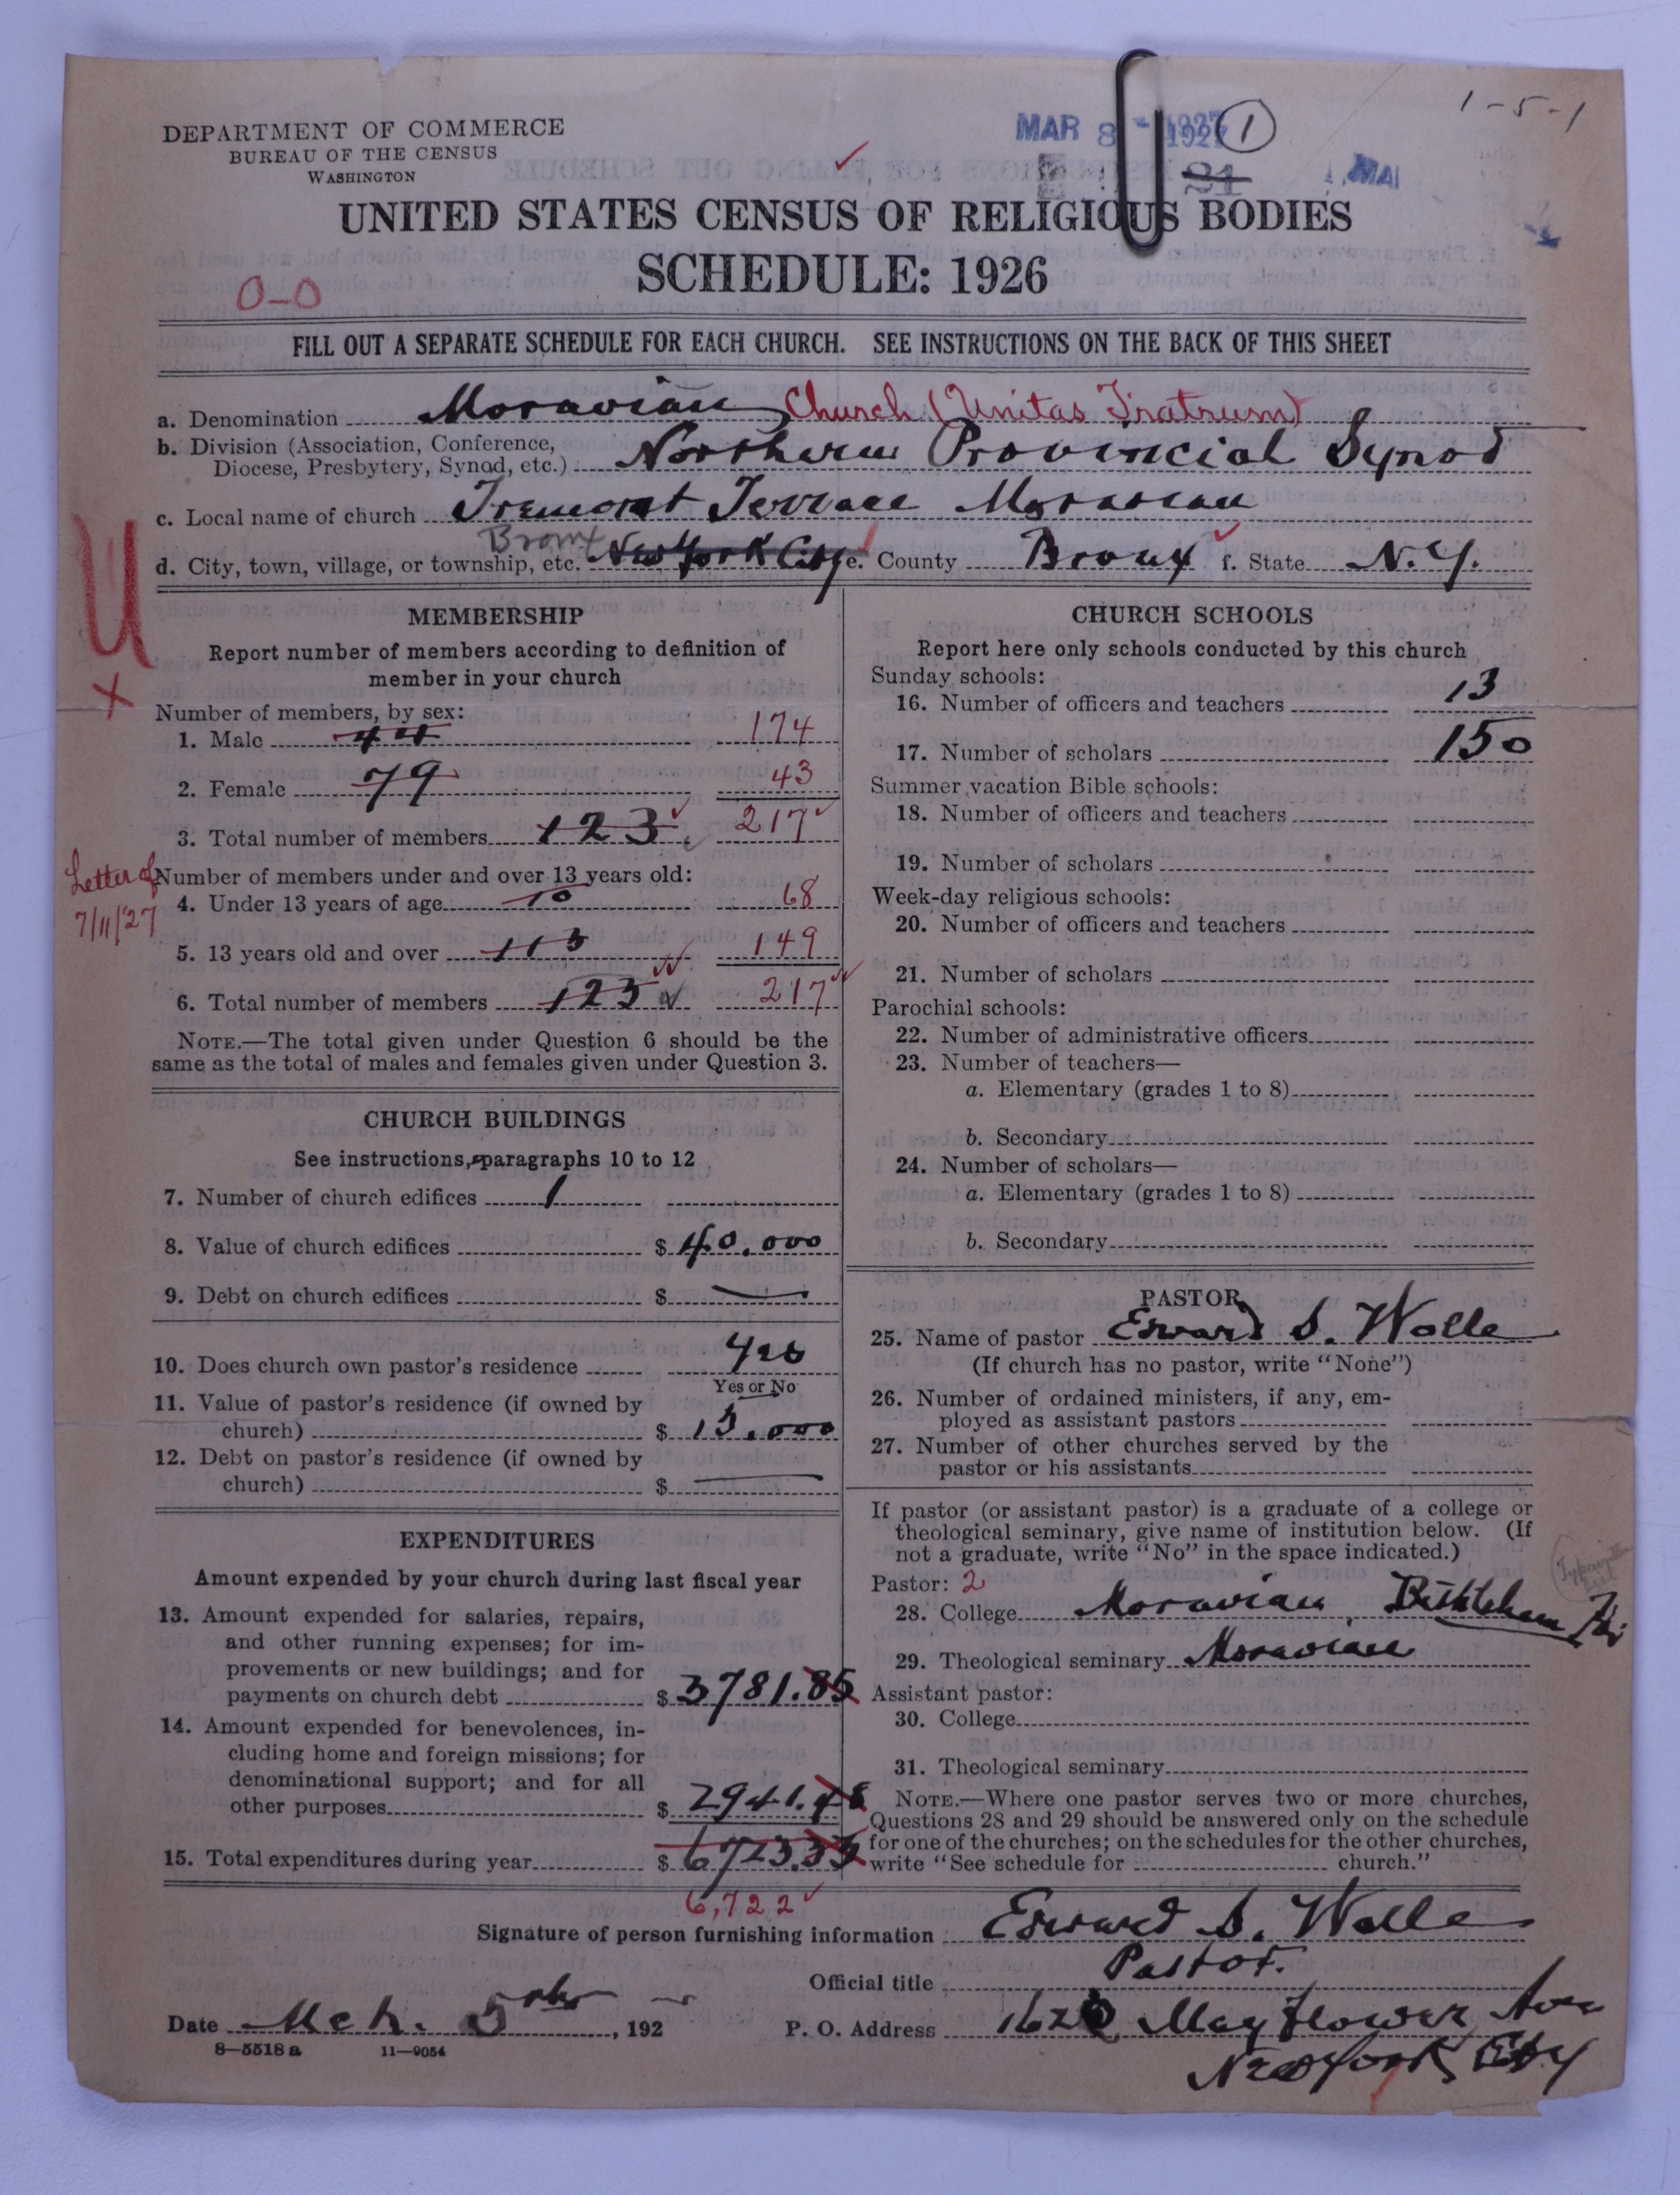 DEPARTMENT OF COMMERCE
BUREAU OF THE CENSUS
WASHINGTON
MAR 8 - 1927
1
1-5-1
MAR
UNITED STATES CENSUS OF RELIGIOUS BODIES
SCHEDULE: 1926
0-0
FILL OUT A SEPARATE SCHEDULE FOR EACH CHURCH. SEE INSTRUCTIONS ON THE BACK OF THIS SHEET
a. Denomination Moravian Church (Unitas Fratrum)
b. Division (Association, Conference,
Diocese, Presbytery, Synod, etc.) Northern Provincial Synod
c. Local name of church Tremont Terrace Moravian
Bronx
d. City, town, village, or township, etc. New York City e. County Bronx f. State N.Y.
U
X
MEMBERSHIP
Report number of members according to definition of
member in your church
Number of members, by sex:
1. Male 44 174
2. Female 79 43
3. Total number of members 123 217
Letter of
7/11/27
Number of members under and over 13 years old:
4. Under 13 years of age 10 68
5. 13 years old and over 113 149
6. Total number of members 123 217
NOTE.—The total given under Question 6 should be the
same as the total of males and females given under Question 3.
CHURCH BUILDINGS
See instructions, paragraphs 10 to 12
7. Number of church edifices 1
8. Value of church edifices $ 40.000
9. Debt on church edifices $ —
10. Does church own pastor's residence yes
Yes or No
11. Value of pastor's residence (if owned by
church) $ 15.000
12. Debt on pastor's residence (if owned by
church) $ —
EXPENDITURES
Amount expended by your church during last fiscal year
13. Amount expended for salaries, repairs,
and other running expenses; for im-
provements or new buildings; and for
payments on church debt $ 3781.85
14. Amount expended for benevolences, in-
cluding home and foreign missions; for
denominational support; and for all
other purposes $ 2941.48
15. Total expenditures during year $ 6723.33
6,722
CHURCH SCHOOLS
Report here only schools conducted by this church
Sunday schools:
16. Number of officers and teachers 13
17. Number of scholars 150
Summer vacation Bible schools:
18. Number of officers and teachers
19. Number of scholars
Week-day religious schools:
20. Number of officers and teachers
21. Number of scholars
Parochial schools:
22. Number of administrative officers
23. Number of teachers—
a. Elementary (grades 1 to 8)
b. Secondary
24. Number of scholars—
a. Elementary (grades 1 to 8)
b. Secondary
PASTOR
25. Name of pastor Edward S. Wolle
(If church has no pastor, write "None")
26. Number of ordained ministers, if any, em-
ployed as assistant pastors
27. Number of other churches served by the
pastor or his assistants
If pastor (or assistant pastor) is a graduate of a college or
theological seminary, give name of institution below. (If
not a graduate, write "No" in the space indicated.)
Pastor: 2
28. College Moravian, Bethlehem
29. Theological seminary Moravian
Assistant pastor:
30. College
31. Theological seminary
NOTE.—Where one pastor serves two or more churches,
Questions 28 and 29 should be answered only on the schedule
for one of the churches; on the schedules for the other churches,
write "See schedule for church."
Signature of person furnishing information Edward S. Wolle
Official title Pastor.
Date Mch. 5, 192
P. O. Address 1620 Mayflower Ave
New York City
8—5518a 11—9054